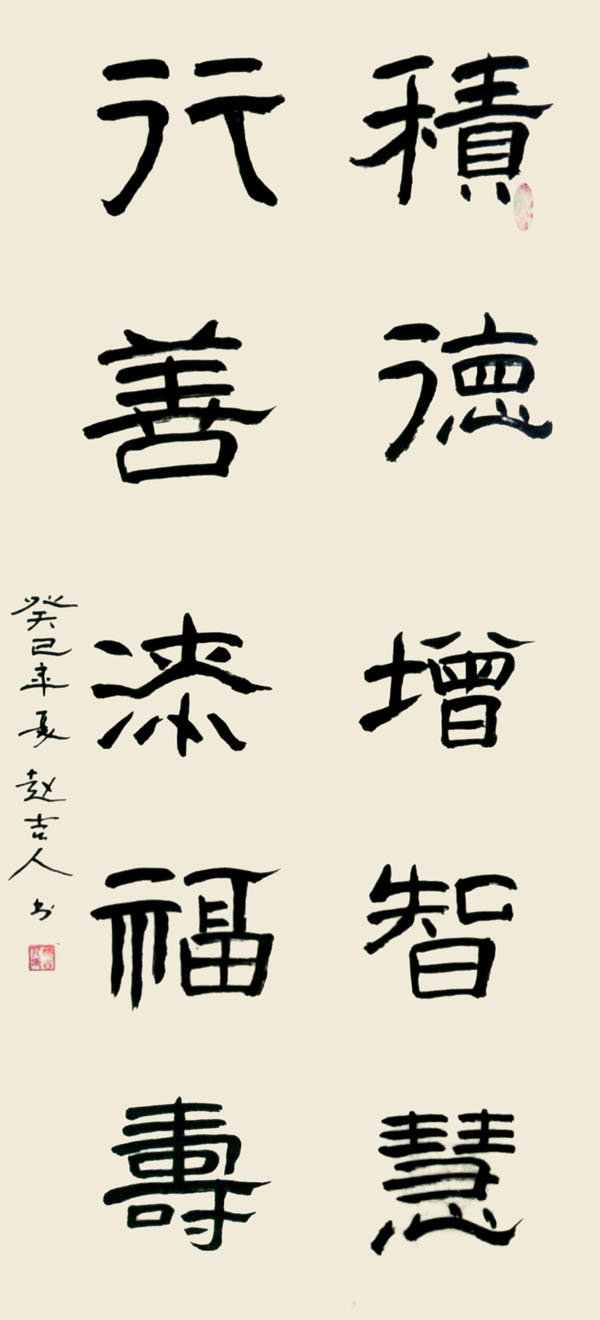 積德增智慧
行善添福壽
癸巳年夏 赵吉人书